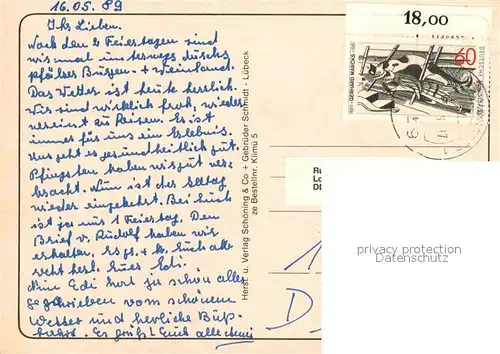 16.05.89
Ihr Lieben.
Nach den 2 Feiertagen sind
wir mal unterwegs durchs
pfälzer Burgen- + Weinland.
Das Wetter ist heute herrlich.
Wir sind wirklich froh, wieder
vereint zu Reisen. Es ist
immer für uns ein Erlebnis.
Uns geht es gesundheitlich gut.
Pfingsten haben wir gut ver-
bracht. Nun ist der Alltag
wieder eingekehrt. Bei Euch
ist ja nur 1 Feiertag. Den
Brief v. Rudolf haben wir
erhalten. Es gr. + k. Euch alle
recht herzl. Eure Edi.
Mein Edi hat ja schon alles
geschrieben vom schönen
Wetter und herrliche
Es grüßt Euch alle
Herst. u. Verlag Schöning & Co + Gebrüder Schmidt - Lübeck
ze Bestellnr. Klimü 5
18,00
60
DEUTSCHE BUNDESPOST
GERHARD MARCKS
Ru
Lo
DE
privacy protection
Datenschutz
D